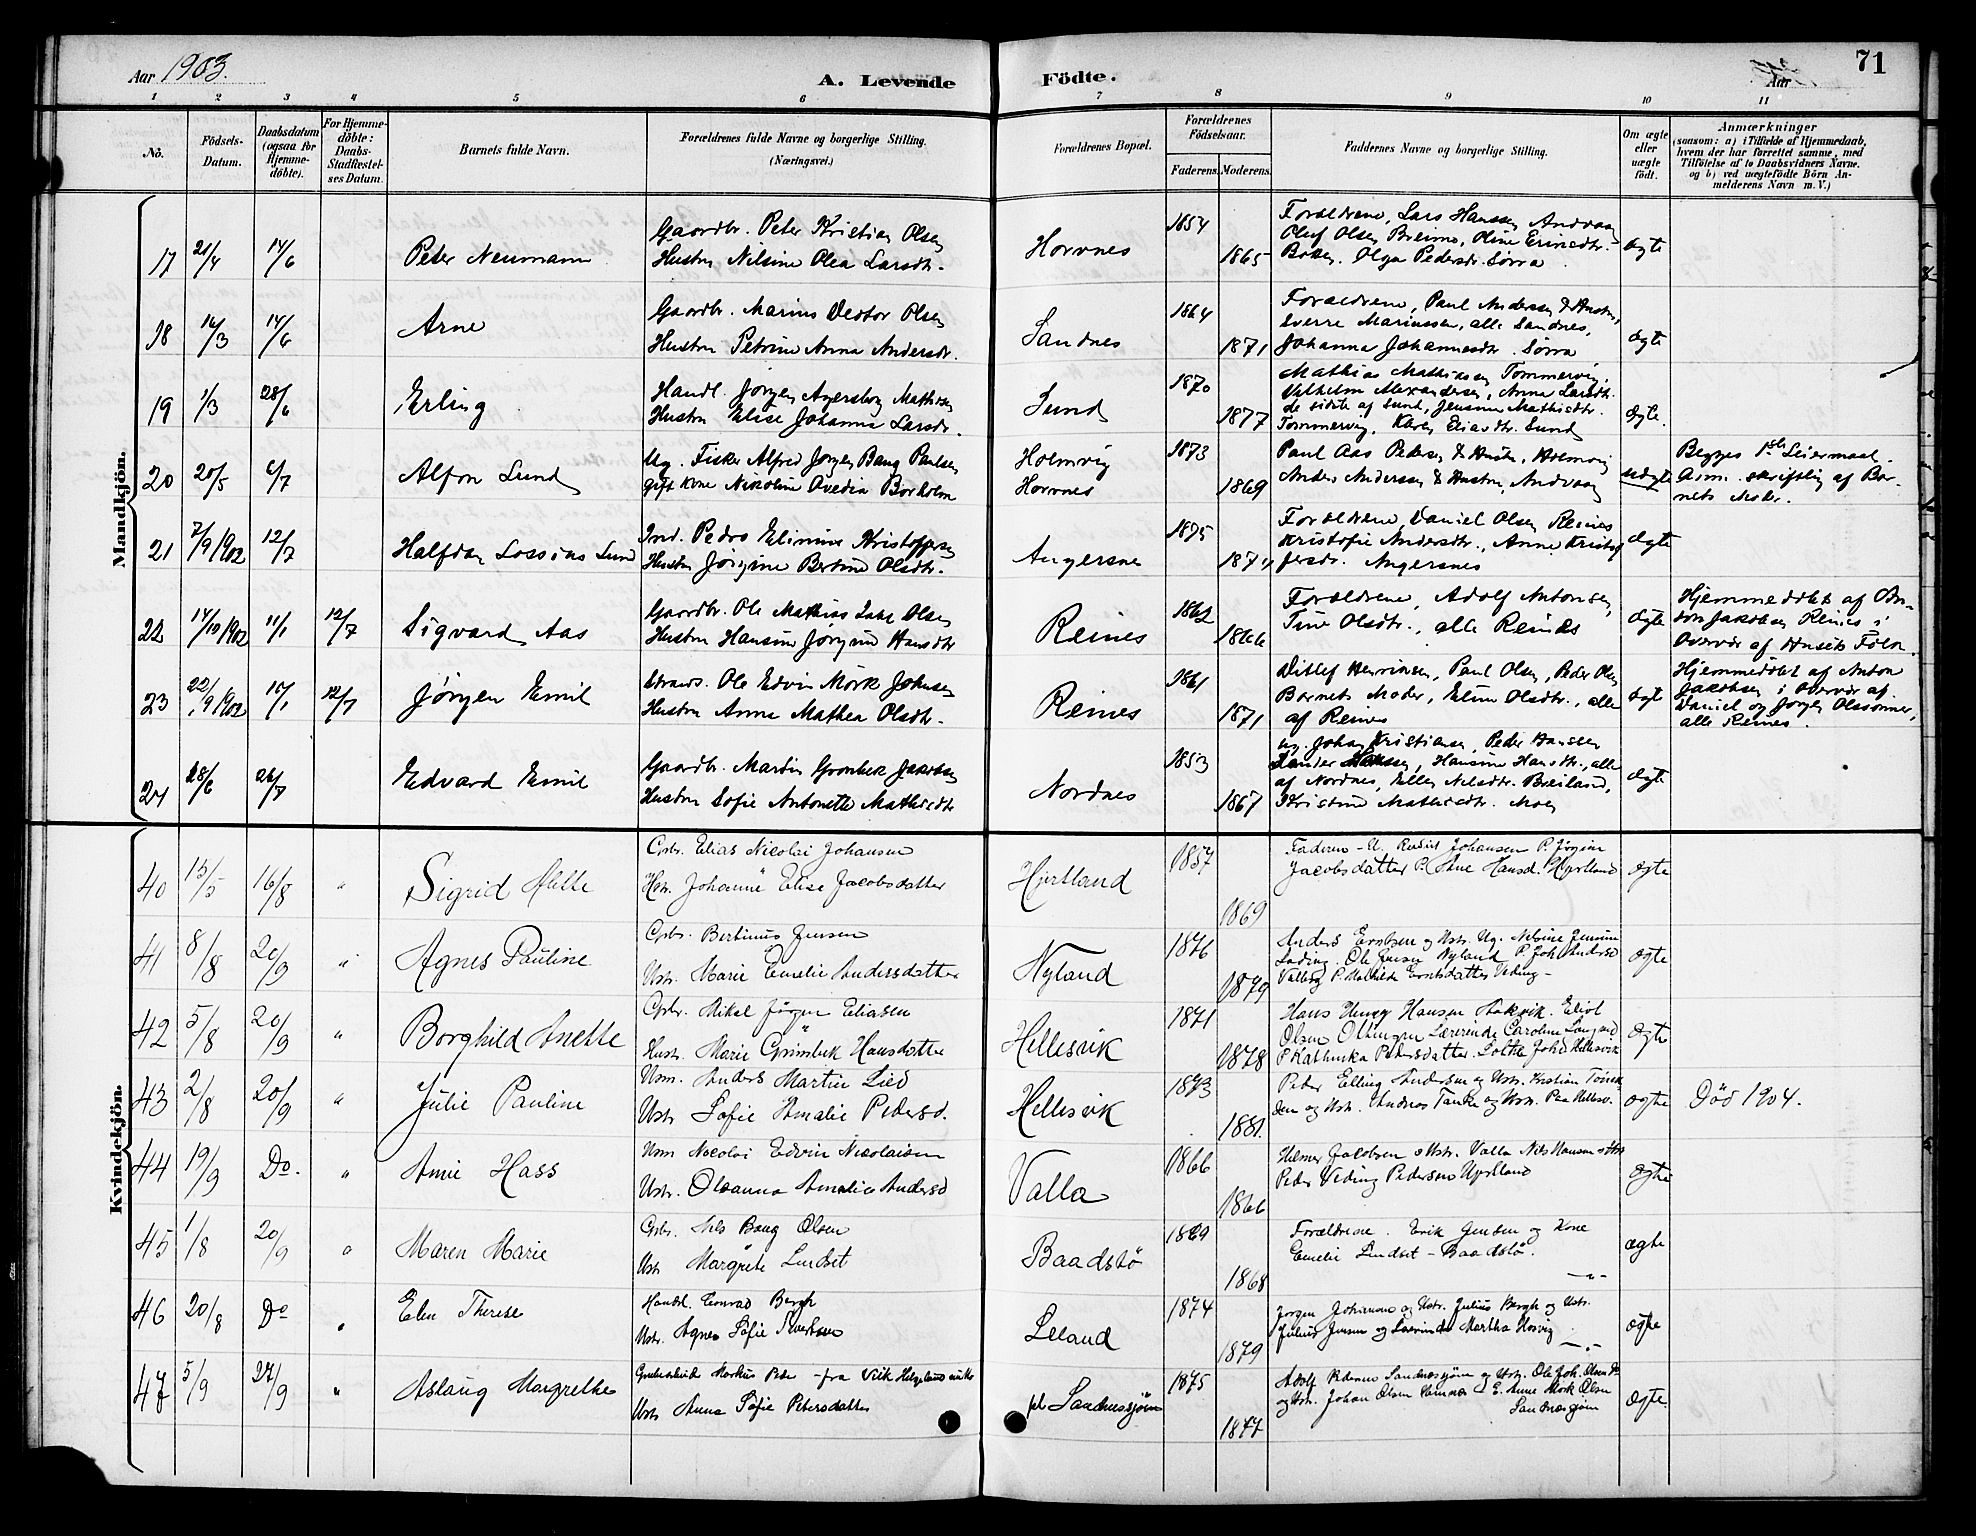 Aar 1903.
A. Levende
Födte.
71
Aar
1 2 3 4 5 6 7 8 9 10 11
No.
Födsels-Datum.
Daabsdatum (ogsaa for Hjemme-döbte).
For Hjemme-döbte: Daabs-Stadfæstel-ses Datum.
Barnets fulde Navn.
Forældrenes fulde Navne og borgerlige Stilling.
(Næringsvei.)
Forældrenes Bopæl.
Forældrenes Födselsaar.
Faderens. Moderens.
Faddernes Navne og borgerlige Stilling.
Om ægte eller uægte födt.
Anmærkninger
(saasom: a) i Tilfælde af Hjemmedaab,
hvem der har forrettet samme, med
Tilföielse af to Daabsvidners Navne.
og b) ved uægtefödte Börn An-
melderens Navn m. V.)
Mandkjön.
17 21/4 14/6 Peter Neumann
Gaardbr. Peter Kristian Olsen
Hustru Nilsine Olea Larsdtr.
Horvnes 1854 1865
Forældrene, Lars Hanssen Andvaag
Oluf Olsen Breimo, Oline
Olga Pedersdr. Sörra
ægte
18 16/3 14/6 Arne
Gaardbr. Marius Olsen
Hustru Petrine Anna Andersdr.
Sandnes 1864 1871
Forældrene, Paul Andersen & Hustru,
Sverre Mariussen, alle Sandnes,
Johanna Johannesdtr. Sörra
ægte
19 1/3 28/6 Erling
Handl. Jörgen Agersborg Mathisen
Hustru Elise Johanna Larsdr.
Sund 1870 1877
Mathias Mathiassen Tommervig,
Vilhelm Alexandersen, Anna Larsdtr.
de sidste af Sund, Jensine Mathisdtr.
Tommervig, Eliasdtr. Sund
ægte.
20 20/5 6/7 Alfon Lund
Ug. Fisker Alfred Jörgen Bang Paulsen
gift Kone Nikoline Ovedia Borholm
Holmvig
Horvnes
1873 1869
Paul Aas Pedersen & Hustru, Holmvig
Anders Andersen & Hustru, Andvaag
uægte
Begges 1ste Leiermaal.
Anm. skriftlig af Bar-
nets Moder.
21 7/9 1902 12/7 Halfdan Lossius Lund
Ind. Pedro Elimius Kristoffersen
Hustru Jörgine Bertine Olsdtr.
Angersnes 1875
Forældrene, Daniel Olsen Reines
Kristofie Andersdtr., Anne Kristof
fersdr. Angersnes
ægte
22 14/10 1902 11/1 12/7 Sigvard Aas
Gaardbr. Ole Mathias Olsen
Hustru Hansine Jörgine Hansdtr
Reines 1862 1866
Forældrene, Adolf Antonsen,
Tine Olsdtr., alle Reines
ægte
Hjemmedöbt af An-
ton Jakobsen Reines i
Overvær af Husets Folk.
23 22/9 1902 11/1 12/7 Jörgen Emil
Ole Edvin Mörk Johnsen
Hustru Anna Mathea Olsdtr.
Reines 1861 1871
Ditlef Henriksen, Paul Olsen, Peder Olsen
Barnets Moder, Eline Olsdtr., alle
af Reines
ægte
Hjemmedöbt af Anton
Jakobsen i Overvær af
Daniel og Jörgen Olssönner,
alle Reines.
24 28/6 26/7 Edvard Emil
Gaardbr. Martin Grönbek Jakobsen
Hustru Sofie Antonette Mathisdtr
Nordnes 1853 1867
Ug. Johan Kristiansen, Peder Hanssen
Hanssen, Hansine Hansdtr., alle
af Nordnes, Ellen Nilsdtr. Breiland,
Kristine Mathisdtr. Moen
ægte
Kvindekjön.
40 15/5 16/8 " Sigrid Mette
Gbr. Elias Nicolai Johansen
Hstr. Johanne Elise Jacobsdatter
Hjertland 1857 1869
Faderen - U. Johansen P. Jörgine
Jacobsdatter P. Ane Hansd. Hjertland
ægte
41 8/8 20/9 " Agnes Pauline
Gbr. Bertinus Jensen
Ustr. Marie Emelie Andersdatter
Nyland 1876 1879
Anders Erntsen og Ustr. Ug. Nilsine Jensine
Ole Jensen Nyland P. Joh. Andersd
P. Mathilde Erntsdatter
ægte
42 5/8 20/9 " Borghild Anette
Gbr. Mikal Jörgen Eliasen
Hustr. Marie Grönbek Hansdatter
Hellesvik 1871 1878
Hans Henry Hansen Eliot
Olsen Lærerinde Caroline
P. Kathinka Pedersdatter Hellesvik
ægte
43 2/8 20/9 " Julie Pauline
Usm. Anders Martin Lied
Ustr Sofie Amalie Pedersd.
Hellesvik 1873 1881.
Peder Elling Andersen og Ustr. Kristian
og Ustr. Andreas og Ustr.
ægthe
Död 1904.
44 19/9 Do. " Anne Hass
Usm Nicolai Edvin Nicolaisen
Ustr. Oleanna Amalie Andersd
Valla 1866 1866
Helmer Jacobsen Ustr. Valla Nils Hansen
Peder Veding Pedersen Hjertland
ægthe
45 1/8 20/9 " Maren Marie
Gbr. Nils Baug Olsen
Ustr Margrete Lindset
Baadstö 1869 1868
Forældrene. Erik Jensen og Kone
Emelie Lindset - Baadstö.
ægte
46 20/8 Do " Elen Therese
Handl. Conrad Bergh
Ustr. Agnes Sofie Sivertsen
Leland 1874 1879
Jörgen Johansen og Ustr. Julius Bergh og Ustr.
Julius Jensen og Martha
ægthe
47 5/9 27/9 " Aslaug Margrethe
Markus - fra Vik
Ustr Anna Sofie Petersdatter
pt Sandnessjöen 1875 1877
Adolf Pedersen Sandnessjöen og Ustr. Ole Joh. Olsen Do
og Ustr. Johan Olsen E. Anne Mörk Olsen
Sandnessjöen
ægte.